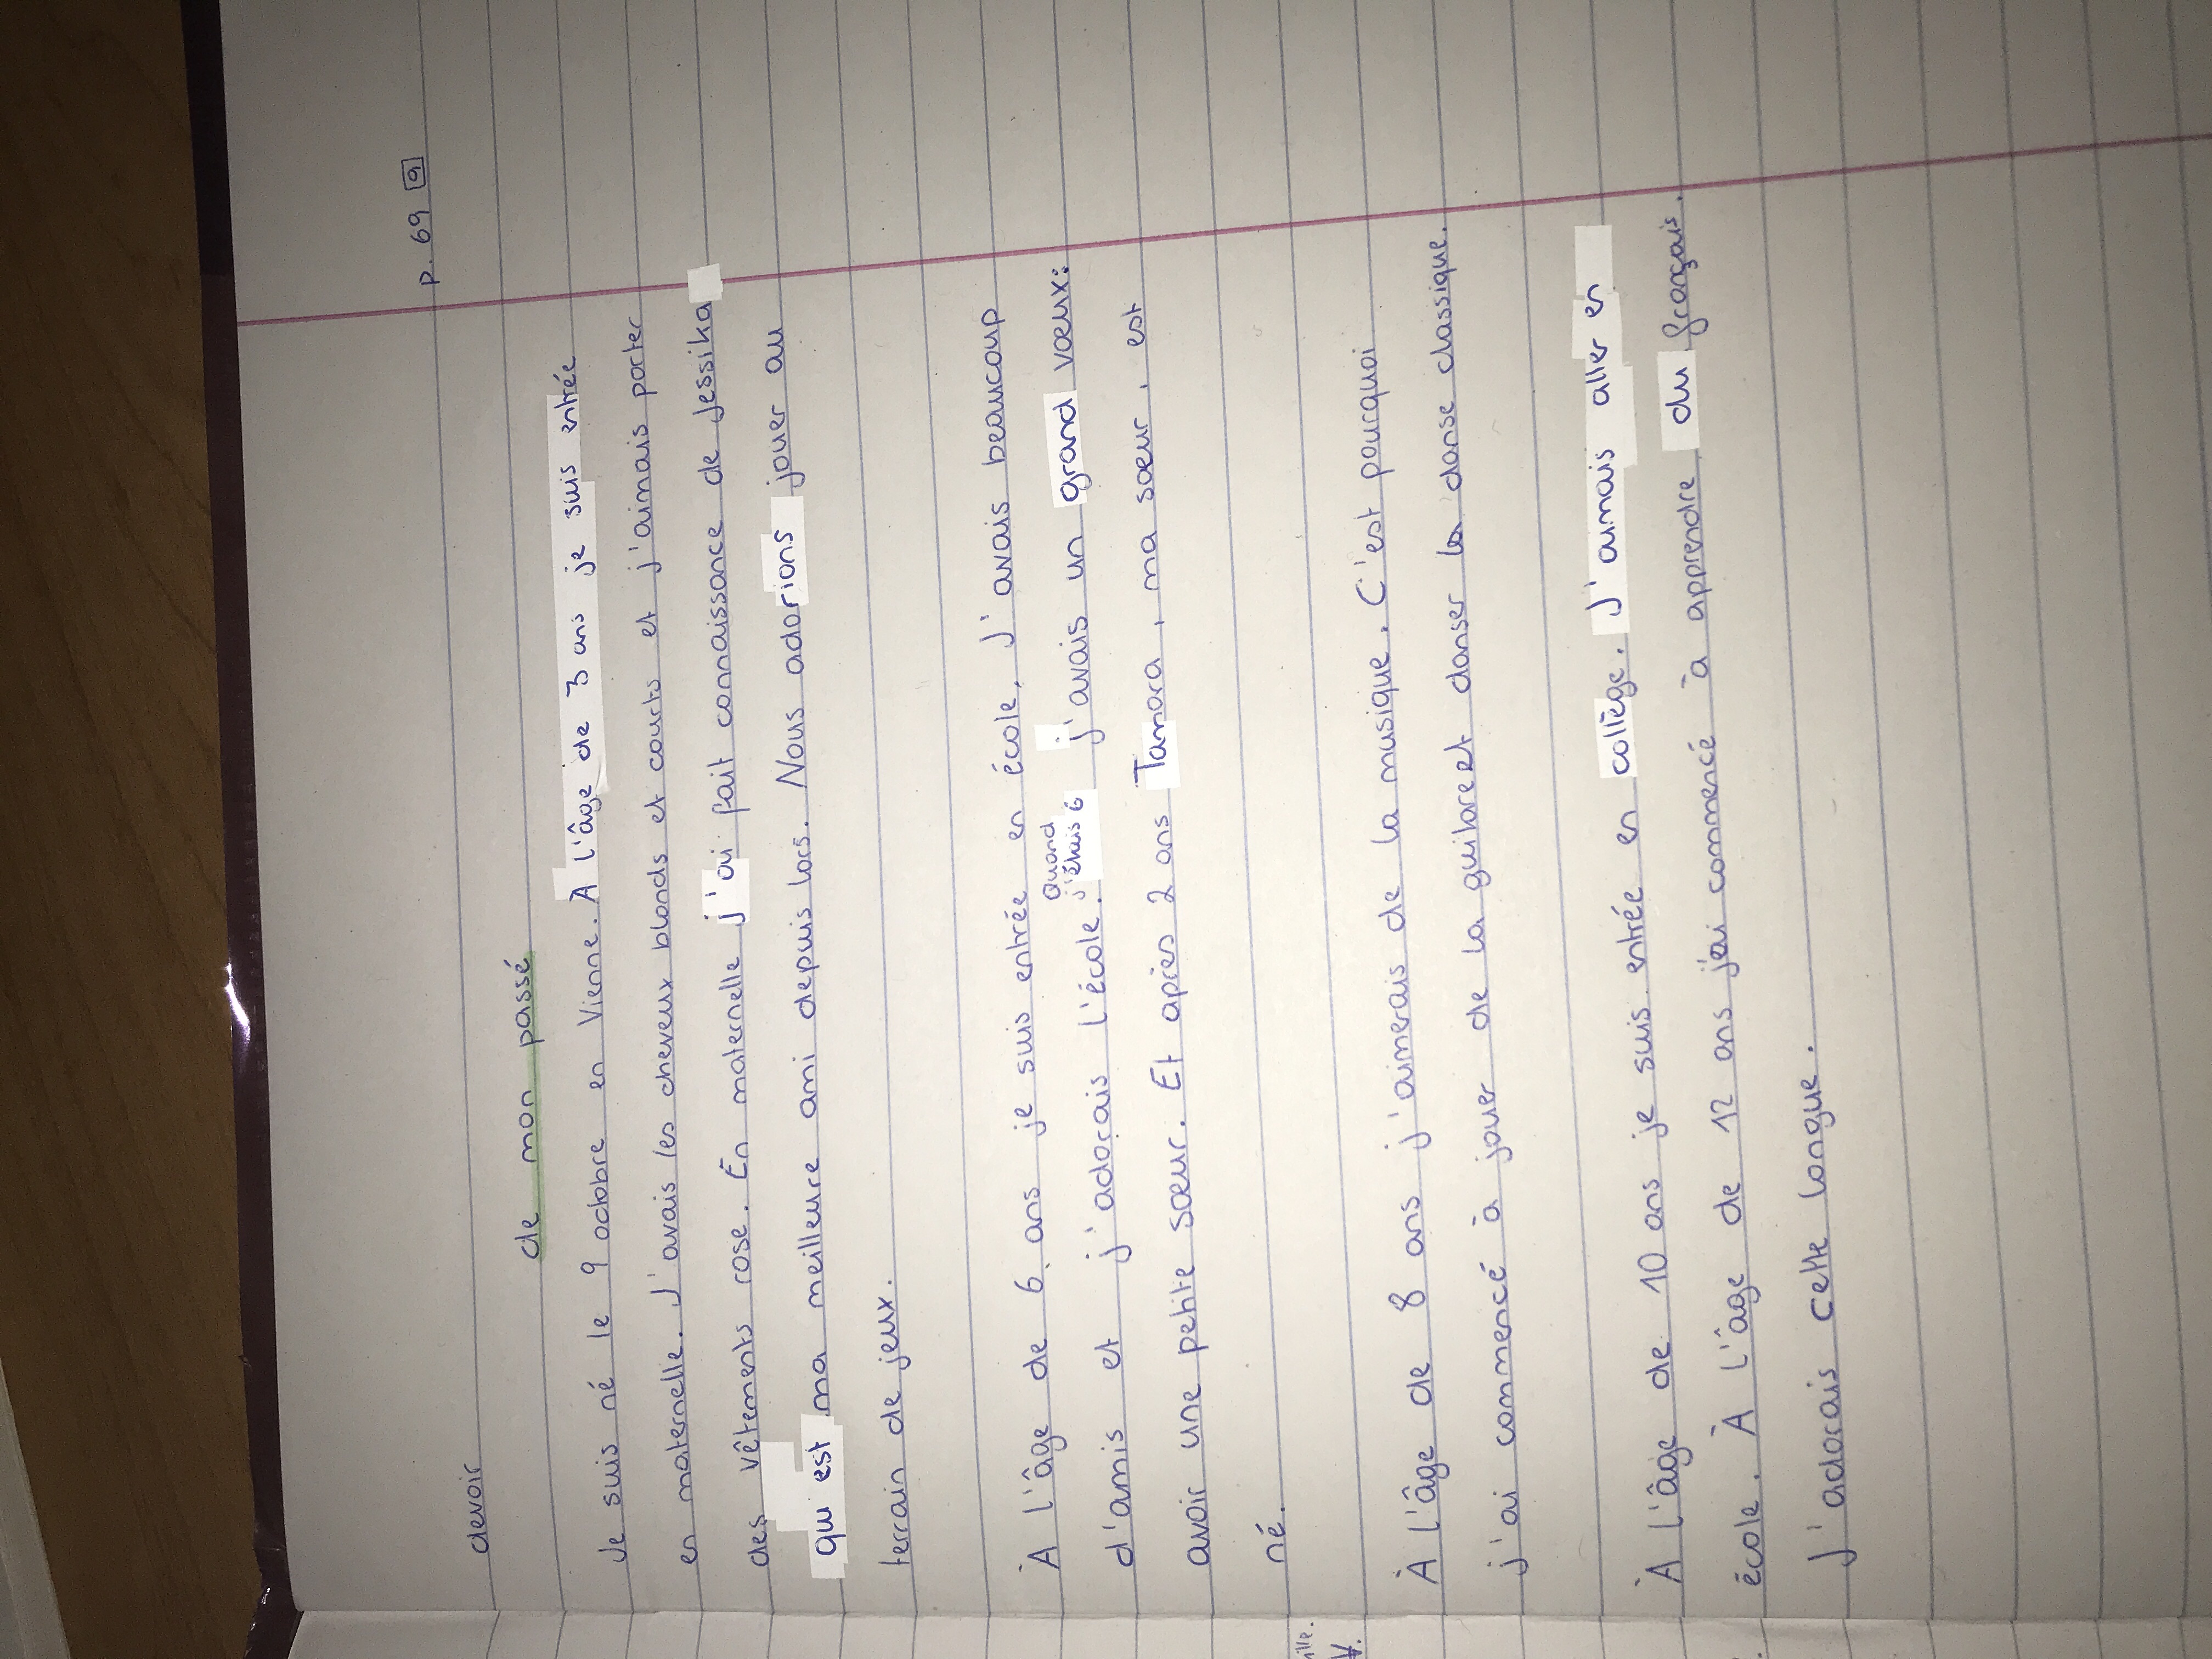 p. 69 9
devoir
de mon passé
Je suis né le 9 octobre en Vienne. A l'âge de 3 ans je suis entrée
en maternelle. J'avais les cheveux blonds et courts et j'aimais porter
des vêtements rose. En maternelle j'ai fait connaissance de Jessika
qui est ma meilleure ami depuis lors. Nous adorions jouer au
terrain de jeux.
À l'âge de 6 ans je suis entrée en école, J'avais beaucoup
Quand
d'amis et j'adorais l'école. j'étais 6 j'avais un grand vœux:
avoir une petite sœur. Et apres 2 ans Tamara, ma sœur, est
né.
À l'âge de 8 ans j'aimerais de la musique. C'est pourquoi
j'ai commencé à jouer de la guitare et danser la danse classique.
À l'âge de 10 ans je suis entrée en collège. J'aimais aller en
école. À l'âge de 12 ans j'ai commencé à apprendre du français.
J'adorais cette langue.
ille.